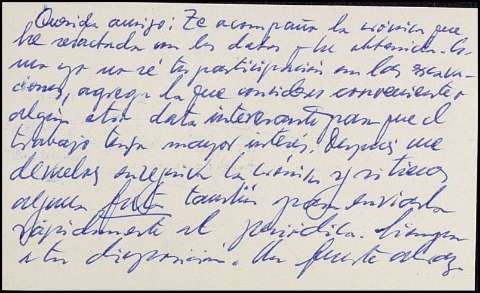 Querido amigo: Te acompaño la crónica que
he redactado con los datos que he obtenido. Co-
mo yo no sé tu participación en las excava-
ciones, agrega lo que consideres conveniente o
algún otro dato interesante para que el
trabajo tenga mayor interés. Después me
devuelves enseguida la crónica y si tienes
alguna foto también para enviarla
rápidamente al periódico. Siempre
a tu disposición. Un fuerte abrazo